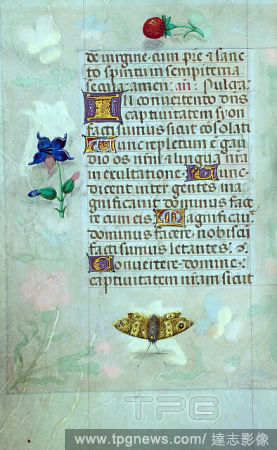 de virgine cum pre et sanc
to spiritum sempiterna
secula. amen. an̄. Pulcra.
IN convertendo dn̄s
captivitatem syon
facti sumus sicut cōsolati
Tunc repletum ē gau
dio os nr̄m et lingua nr̄a
in exultatione. Tunc
dicent inter gentes ma
gnificavit dominus face
re cum eis. Magnificavit
dominus facere nobiscū
facti sumus letantes.
Convertere domine
captivitatem nr̄am sicut
TPG
www.tpgnews.com/達志影像